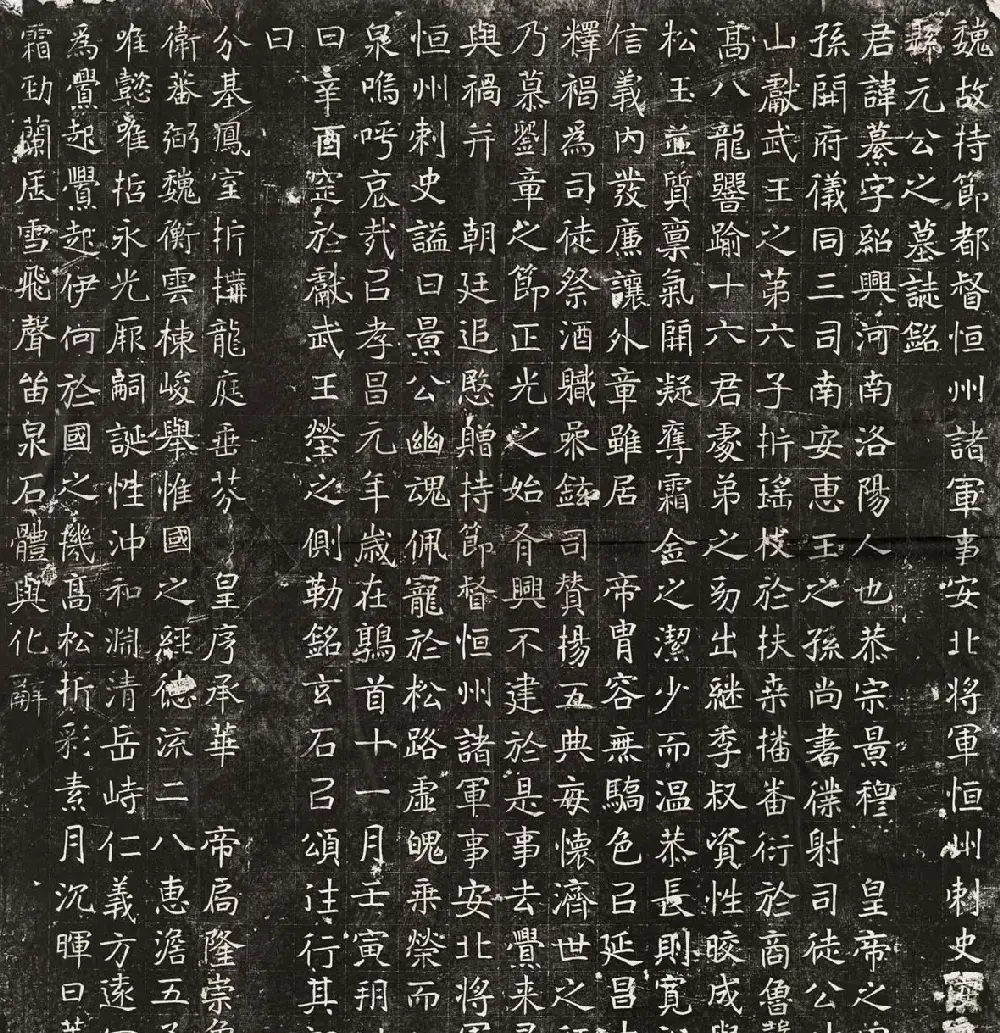 魏故持節都督恒州諸軍事安北將軍恒州刺史
縣元公之墓誌銘
君諱纂字紹興河南洛陽人也恭宗景穆 皇帝之
孫開府儀同三司南安惠王之孫尚書僕射司徒公
山獻武王之第六子折瑤枝於扶桑播番衍於商魯
高八龍響踰十六君處弟之幼出継季叔資性皎成
松玉並質稟氣開凝奪霜金之潔少而温恭長則寬
信義內發廉讓外章雖居 帝胄容無驕色召延昌
釋褐為司徒祭酒職㕘鉉司賛揚五典每懷濟世之
乃慕劉章之節正光之始有興不建於是事去釁来
與禍并 朝廷追愍贈持節督恒州諸軍事安北將
恒州刺史謚曰景公幽魂佩寵於松路虛魄乗榮而
泉嗚呼哀㦲召孝昌元年歲在鶉首十一月壬寅朔
日辛酉窆於獻武王塋之側勒銘玄石召頌往行其
曰
分基鳳室折𣟴龍庭垂芬 皇序承華 帝扃隆崇
衛蕃弼魏衡雲棟峻舉惟國之經德流二八惠澹五
唯懿唯哲永光厥嗣誕性沖和淵清岳峙仁義方遠
為釁起釁起伊何於國之機高松折彩素月沉暉曰
霜勁蘭居雪飛聲留泉石體與化辭